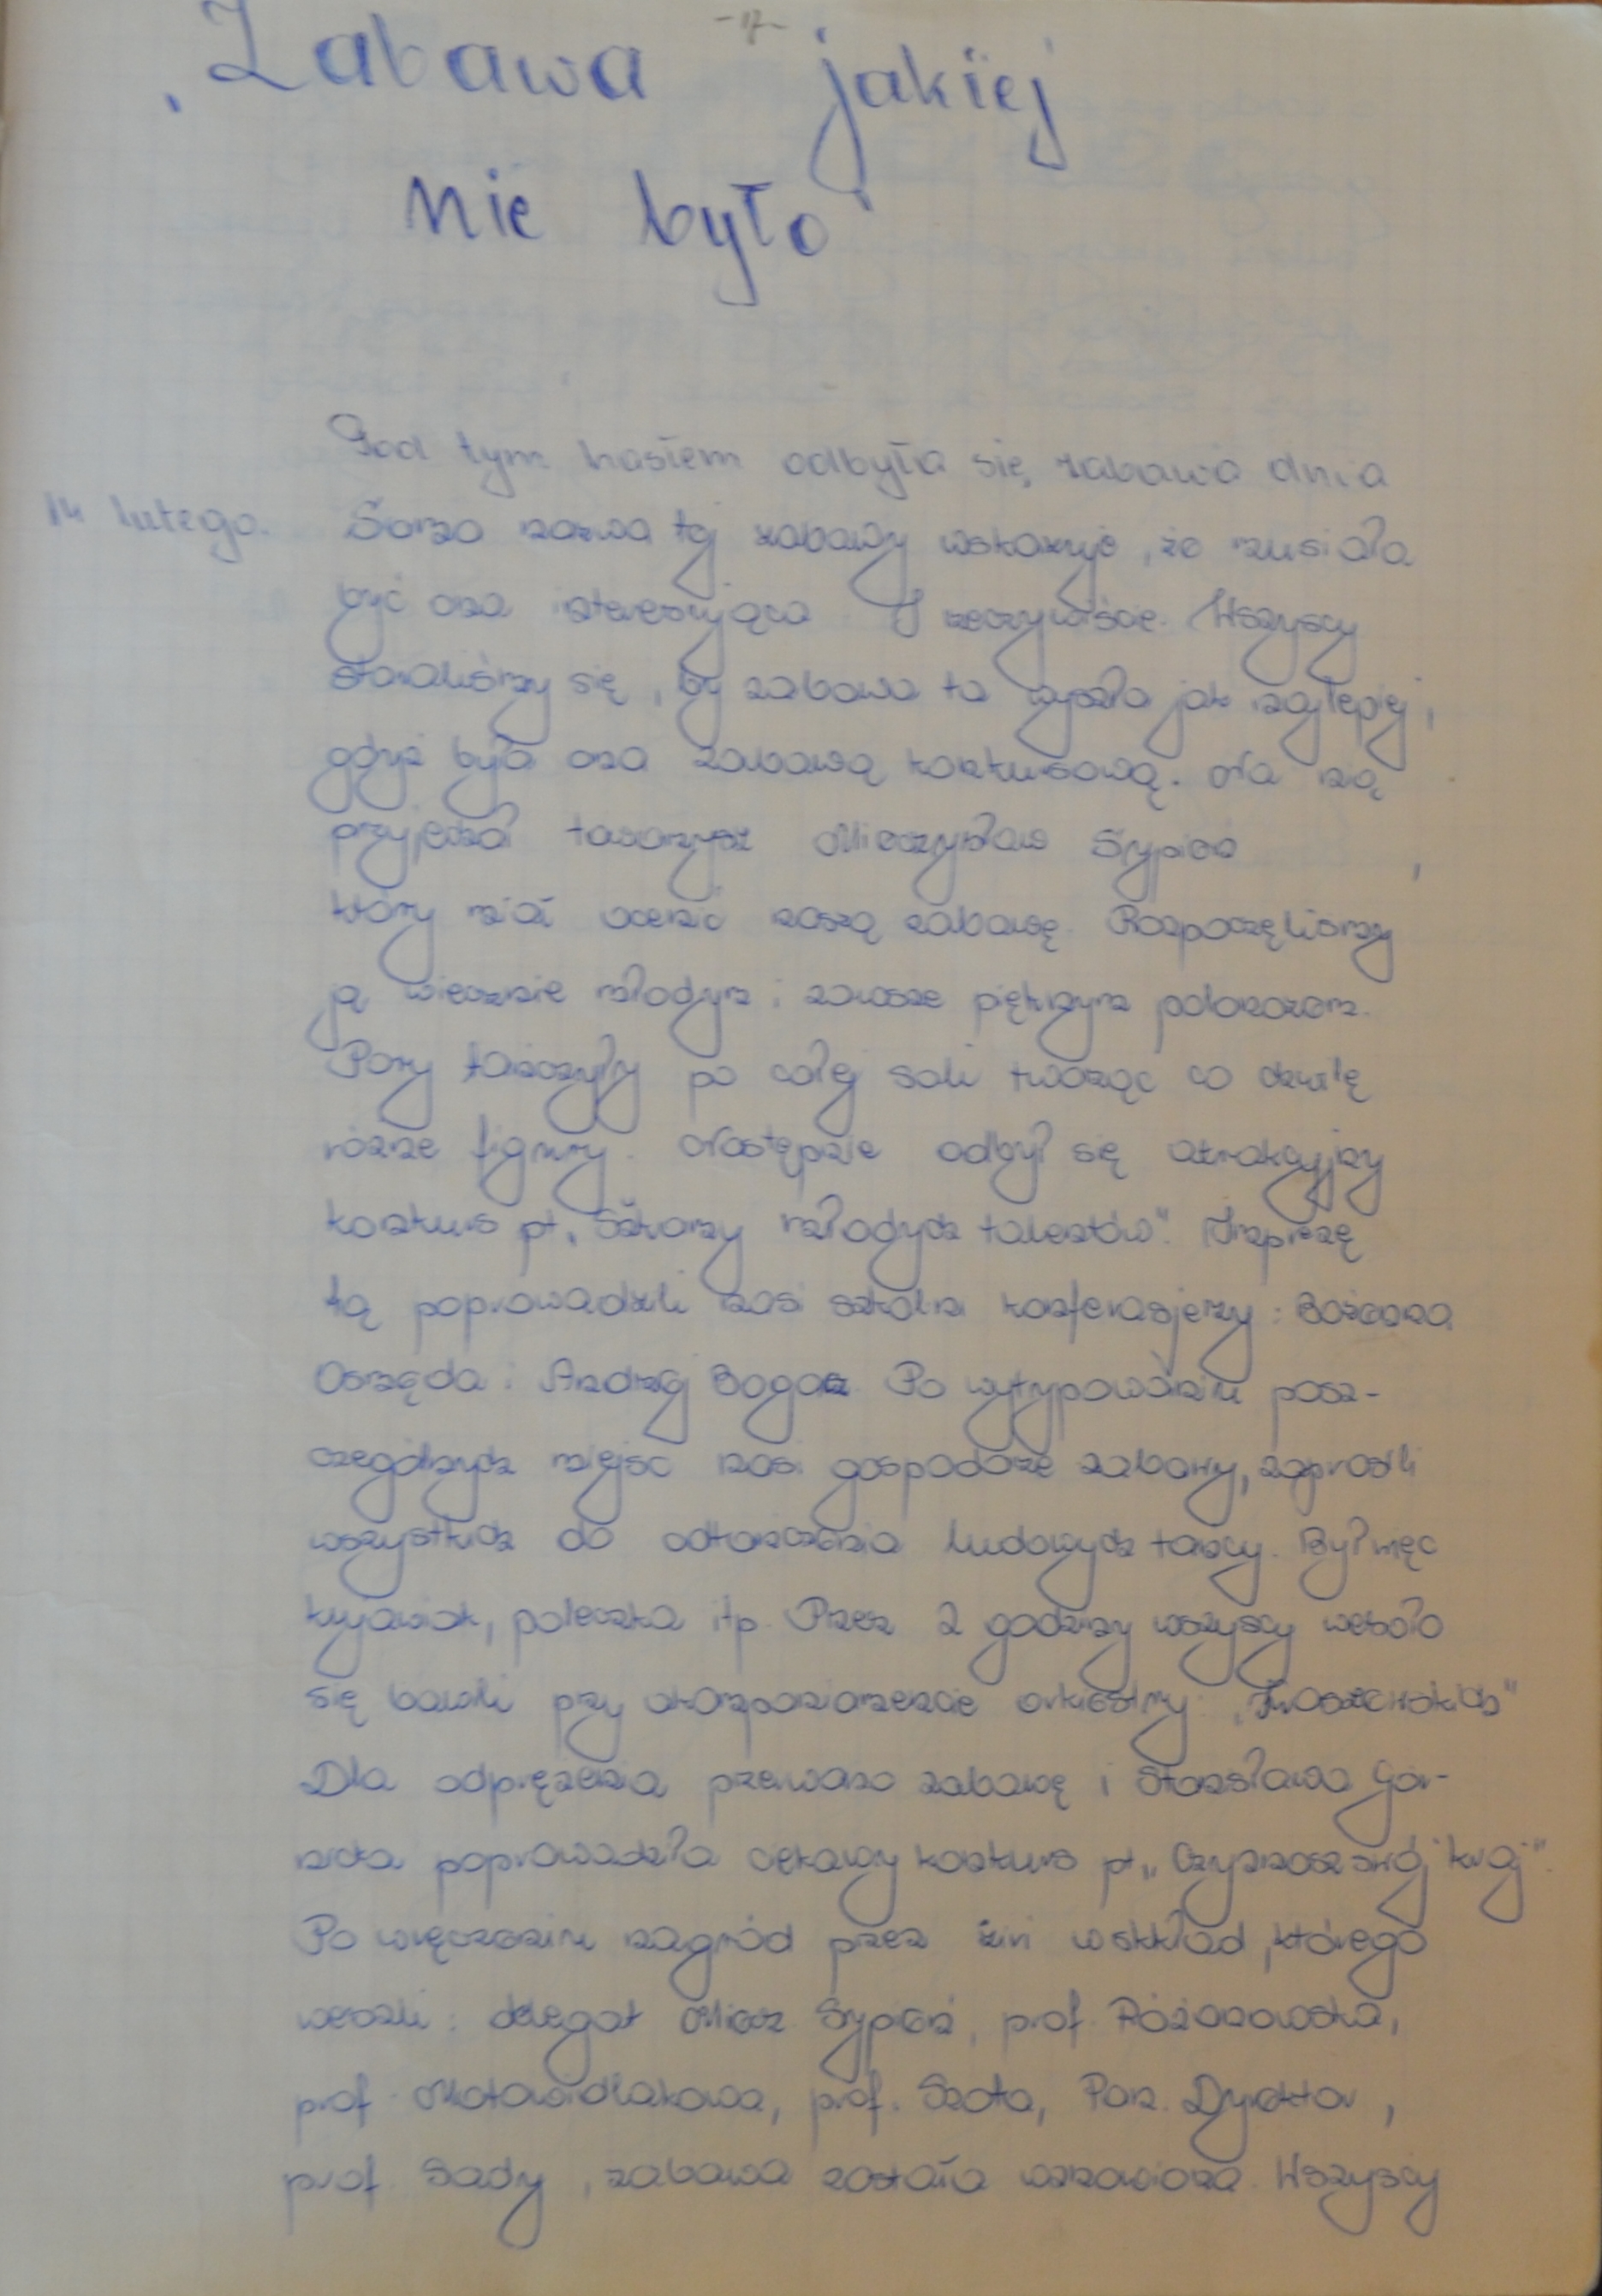 -17-
„Zabawa jakiej
nie było"
Pod tym hasłem odbyła się zabawa dnia
14 lutego. Sama nazwa tej zabawy wskazuje, że musiała
być ona interesująca. I rzeczywiście. Wszyscy
staraliśmy się, by zabawa ta wyszła jak najlepiej,
gdyż była ona zabawą konkursową. Na nią
przyjechał towarzysz Mieczysław Sypień,
który miał ocenić naszą zabawę. Rozpoczęliśmy
ją wiecznie młodym i zawsze pięknym polonezem.
Pary tańczyły po całej sali tworząc co chwilę
różne figury. Następnie odbył się atrakcyjny
konkurs pt. „Szukamy młodych talentów". Imprezę
tą poprowadzili nasi szkolni konferansjerzy: Bożena
Osmęda i Andrzej Bogacz. Po wytypowaniu posz-
czególnych miejsc nasi gospodarze zabawy, zaprosili
wszystkich do odtańczenia ludowych tańcy. Był więc
kujawiak, poleczka itp. Przez 2 godziny wszyscy wesoło
się bawili przy akompaniamencie orkiestry:
Dla odprężenia przerwano zabawę i Stanisława Gór-
nicka poprowadziła ciekawy konkurs pt. „Czy znasz swój kraj".
Po wręczeniu nagród przez w skład, którego
weszli: delegat Miecz. Sypień, prof. Różanowska,
prof. Motowidlakowa, prof. Szota, Pan Dyrektor,
prof. Sady, zabawa została wznowiona. Wszyscy